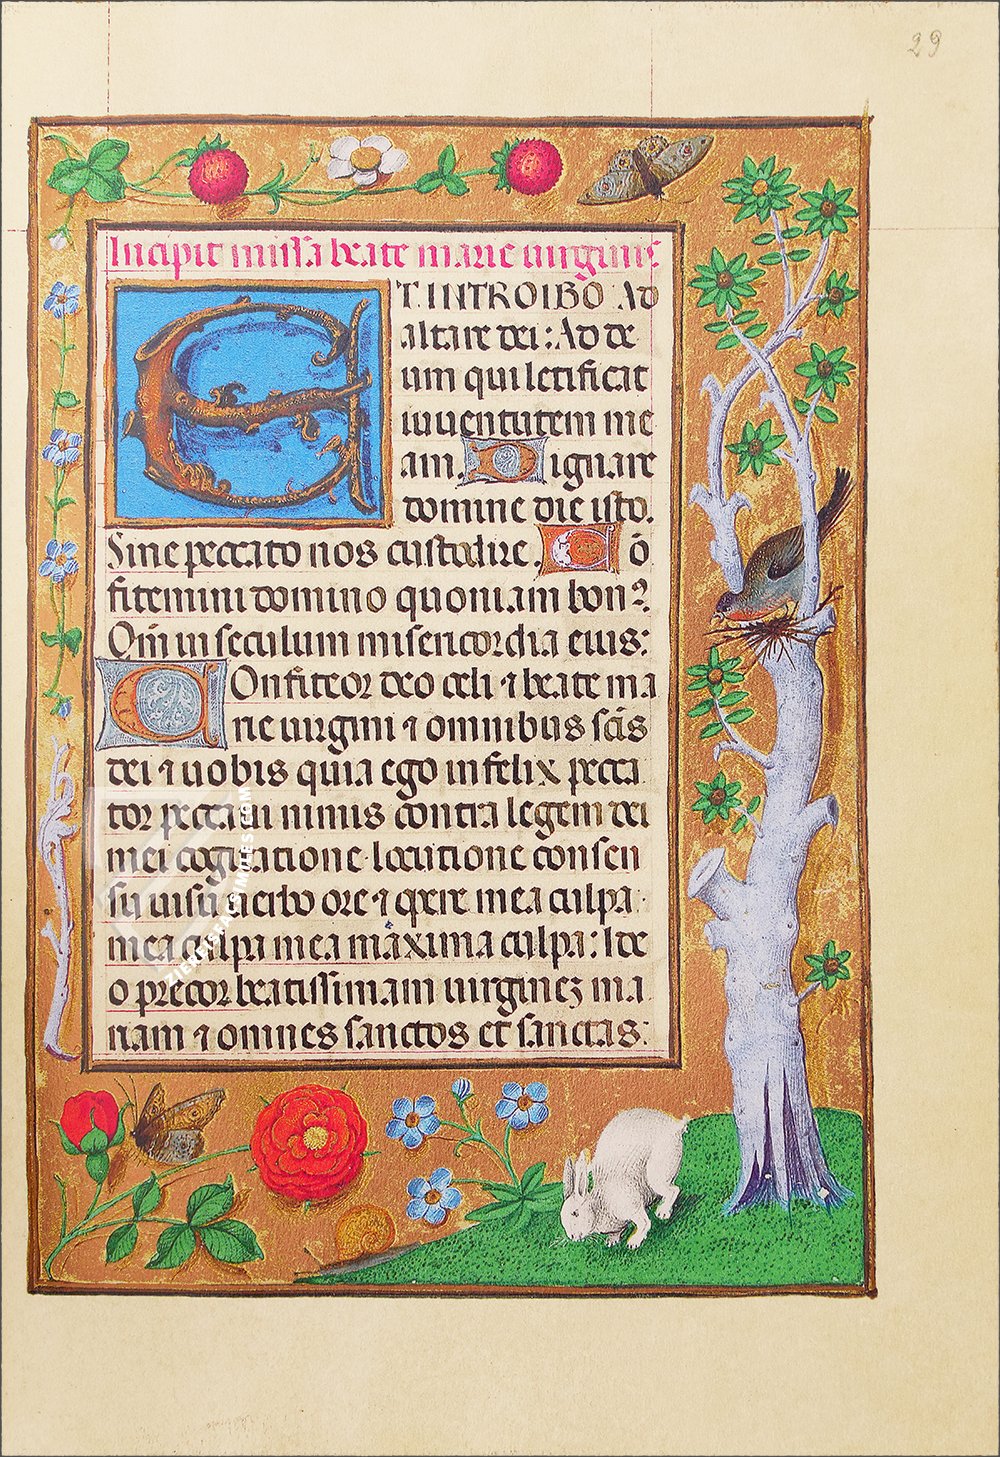 29
Incipit missa beate marie uirginis
ET INTROIBO Ad
altare dei: Ad de
um qui letificat
iuuentutem me
am. Dignare
domine die isto.
Sine peccato nos custodire. Cō
fitemini domino quoniam bonꝰ.
Qm̄ in seculum misericordia eius:
Confiteor deo celi ⁊ beate ma
rie uirgini ⁊ omnibus scīs
dei ⁊ uobis quia ego infelix pecca
tor peccaui nimis contra legem dei
mei cogitatione locutione consen
su uisu uerbo ore ⁊ opere mea culpa
mea culpa mea maxima culpa: Ide
o precor beatissimam uirginez ma
riam ⁊ omnes sanctos et sanctas:
ZIEREISFACSIMILES.COM